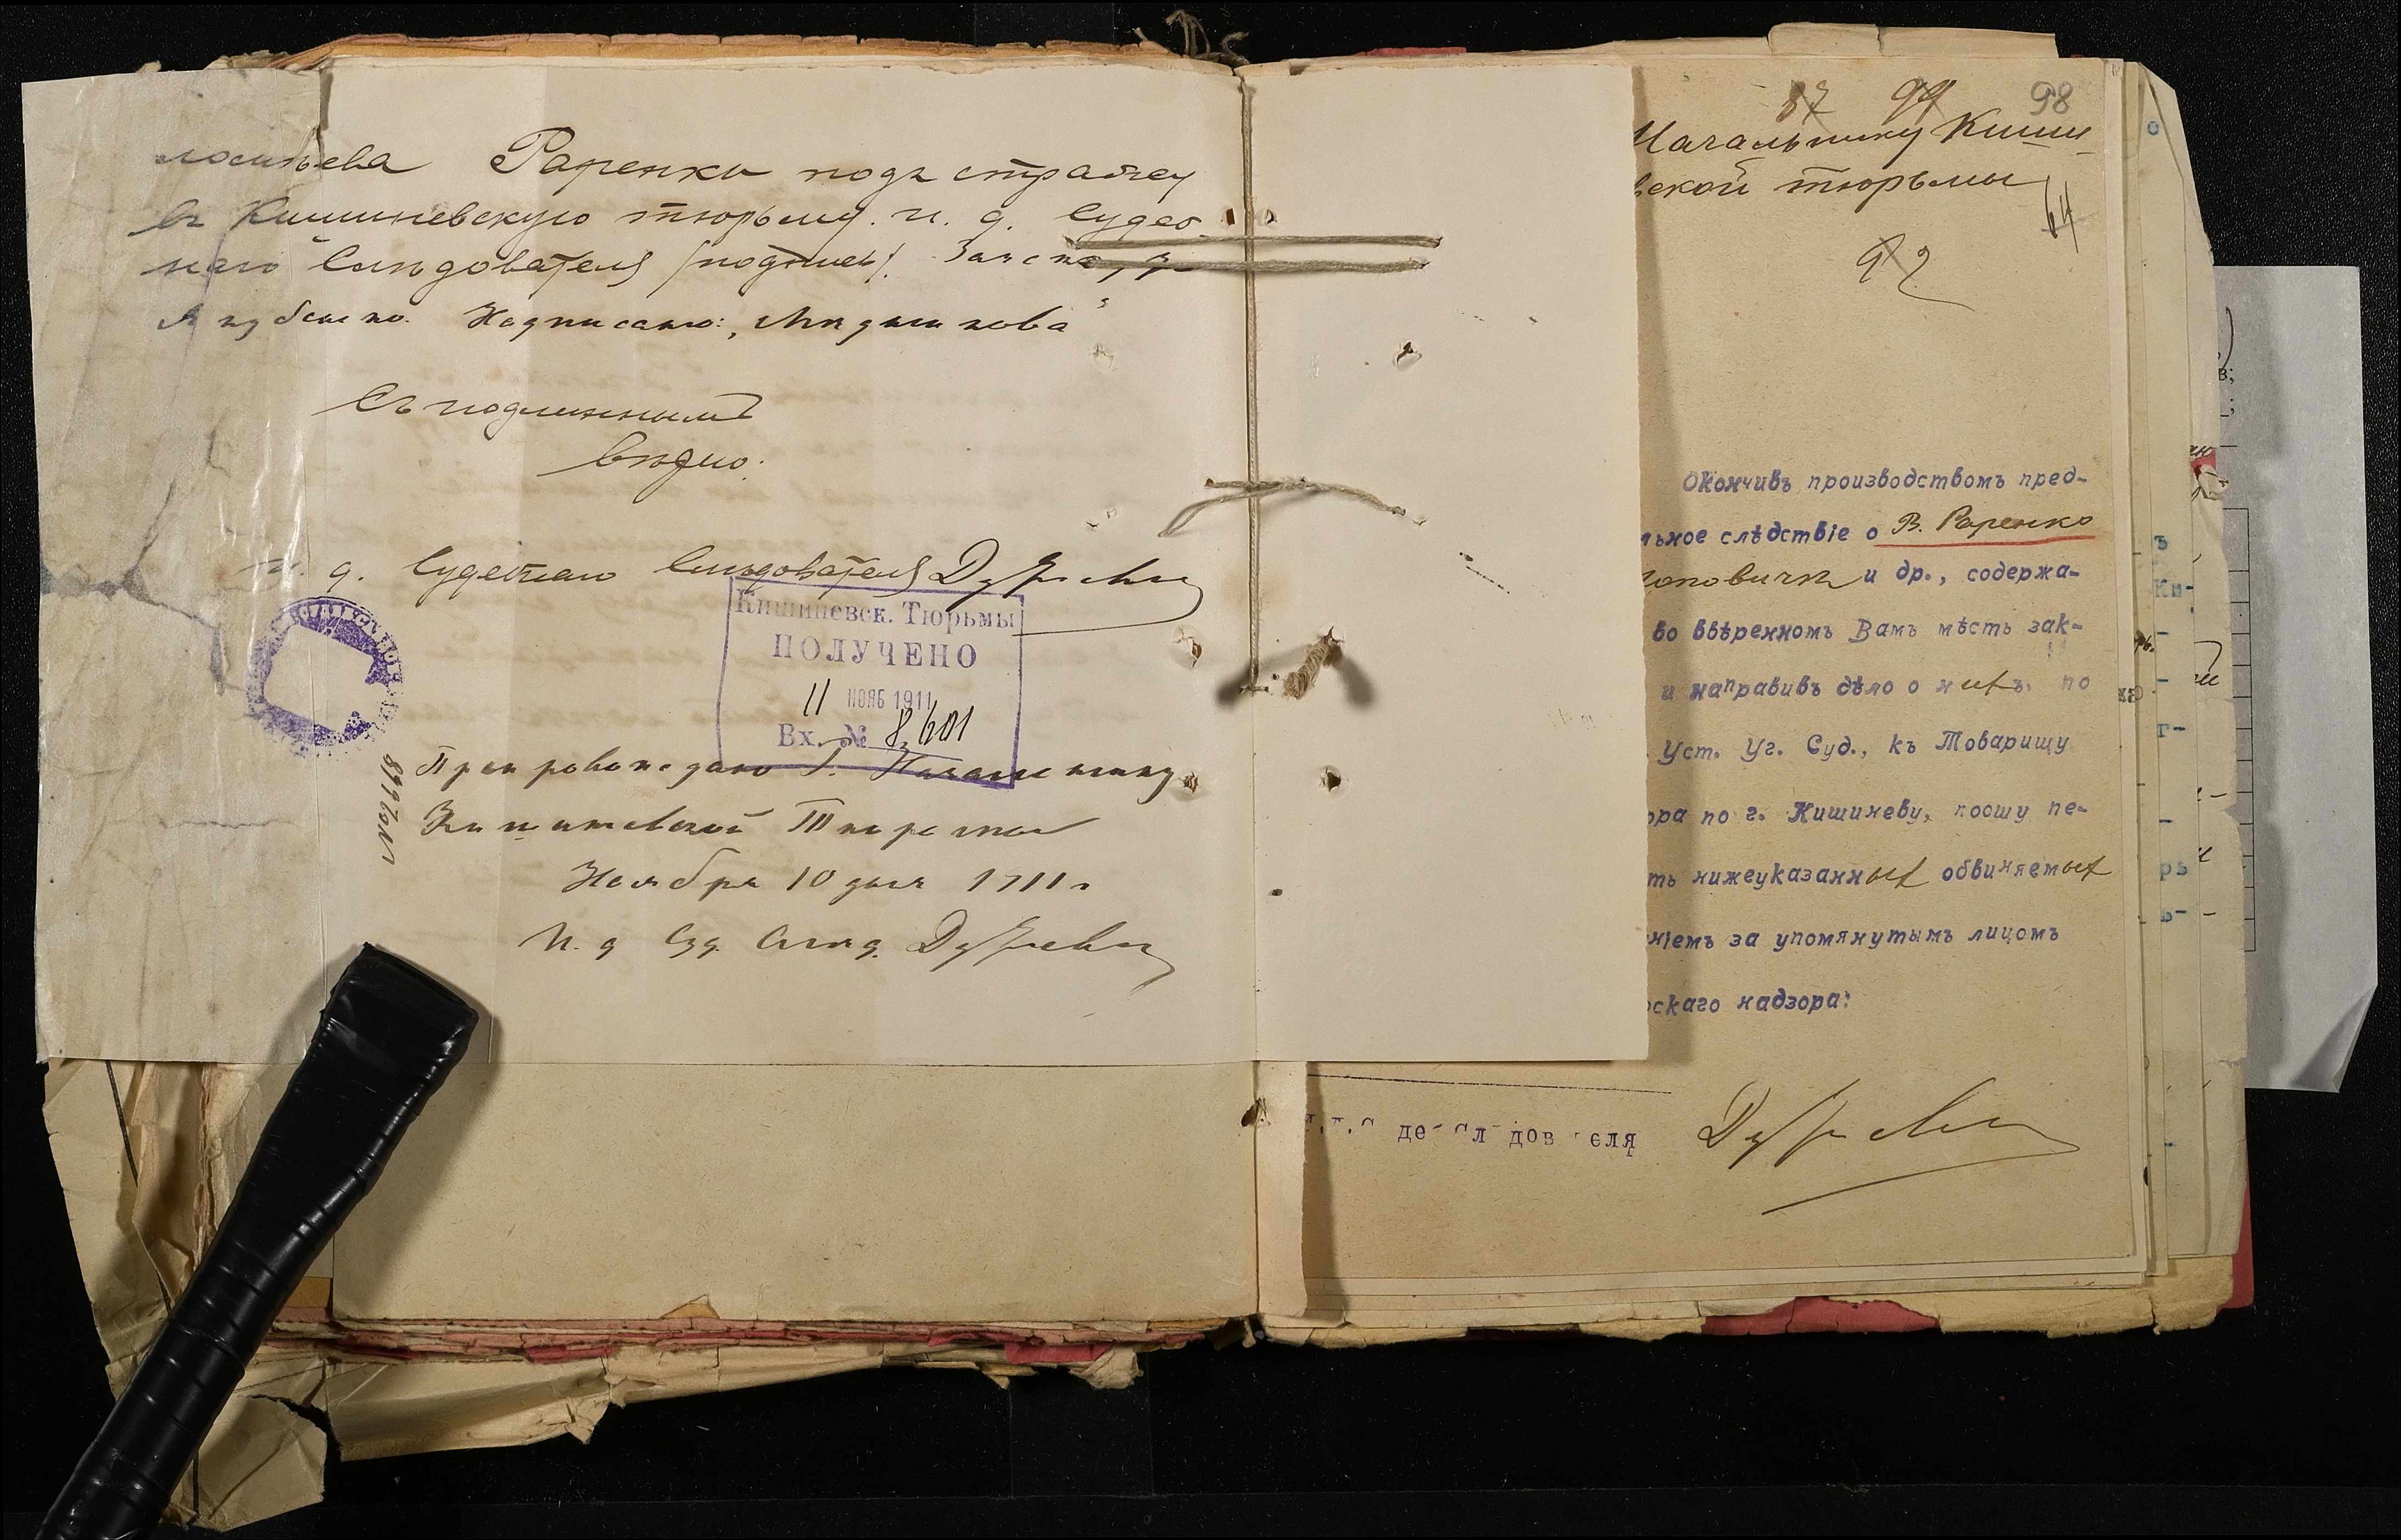 Раренки подъ стражу
въ Кишиневскую тюрьму. И. д. Судеб-
наго Слѣдователя /подпись/. За секр,
Якубенко. Надписано:
Съ подлиннымъ
вѣрно:
И. д. Судебнаго Слѣдователя
Кишиневск. Тюрьмы
ПОЛУЧЕНО
11 НОЯБ 1911
Вх. № 8,601
Препровождаю Г. Начальнику
Кишиневской Тюрьмы
Ноября 10 дня 1911 г
И. д Суд. Слѣд.
87 94 98
Начальнику Киши
вской тюрьмы
64
92
Окончивъ производствомъ пред-
льное слѣдствіе о В. Раренко
и др., содержа-
во ввѣренномъ Вамъ мѣстѣ зак-
и направивъ дѣло о нихъ, по
Уст. Уг. Суд., къ Товарищу
ора по г. Кишиневу, прошу пе-
ть нижеуказанныхъ обвиняемыхъ
ніемъ за упомянутымъ лицомъ
скаго надзора: